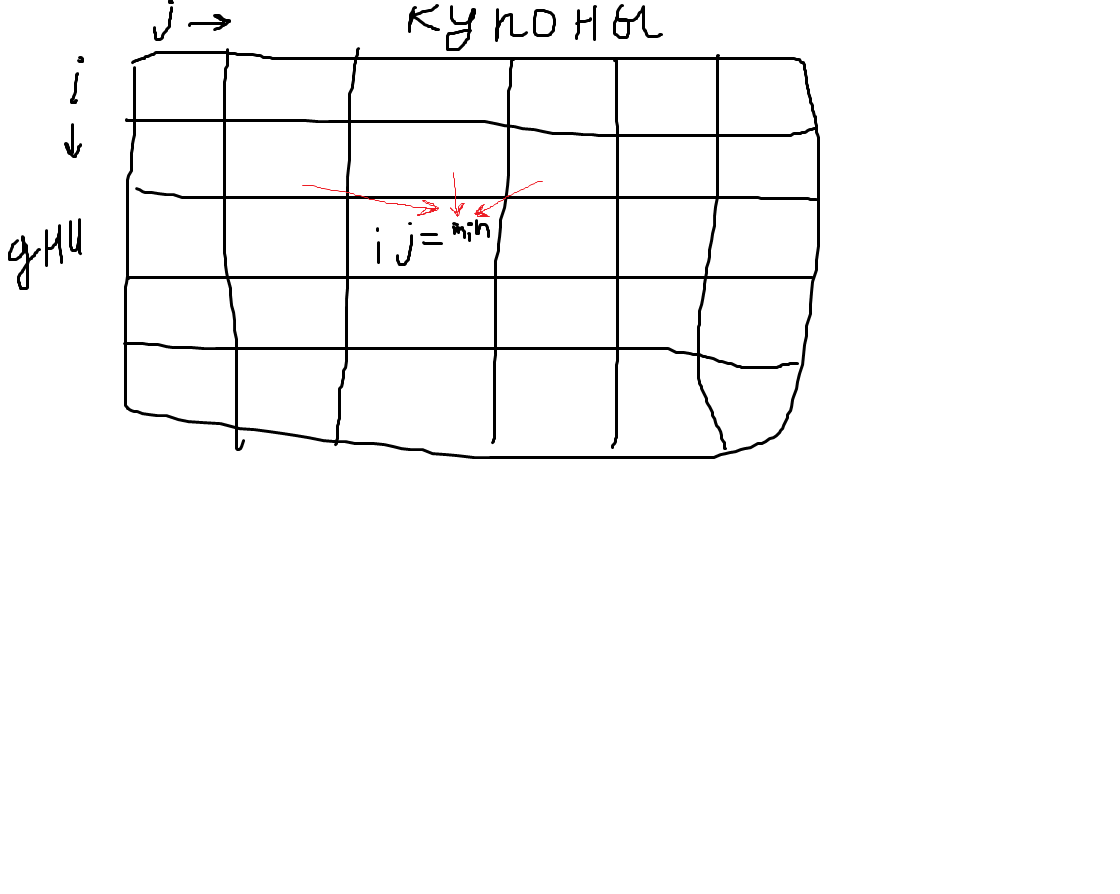 j → купоны
i
↓
дни
i j = min